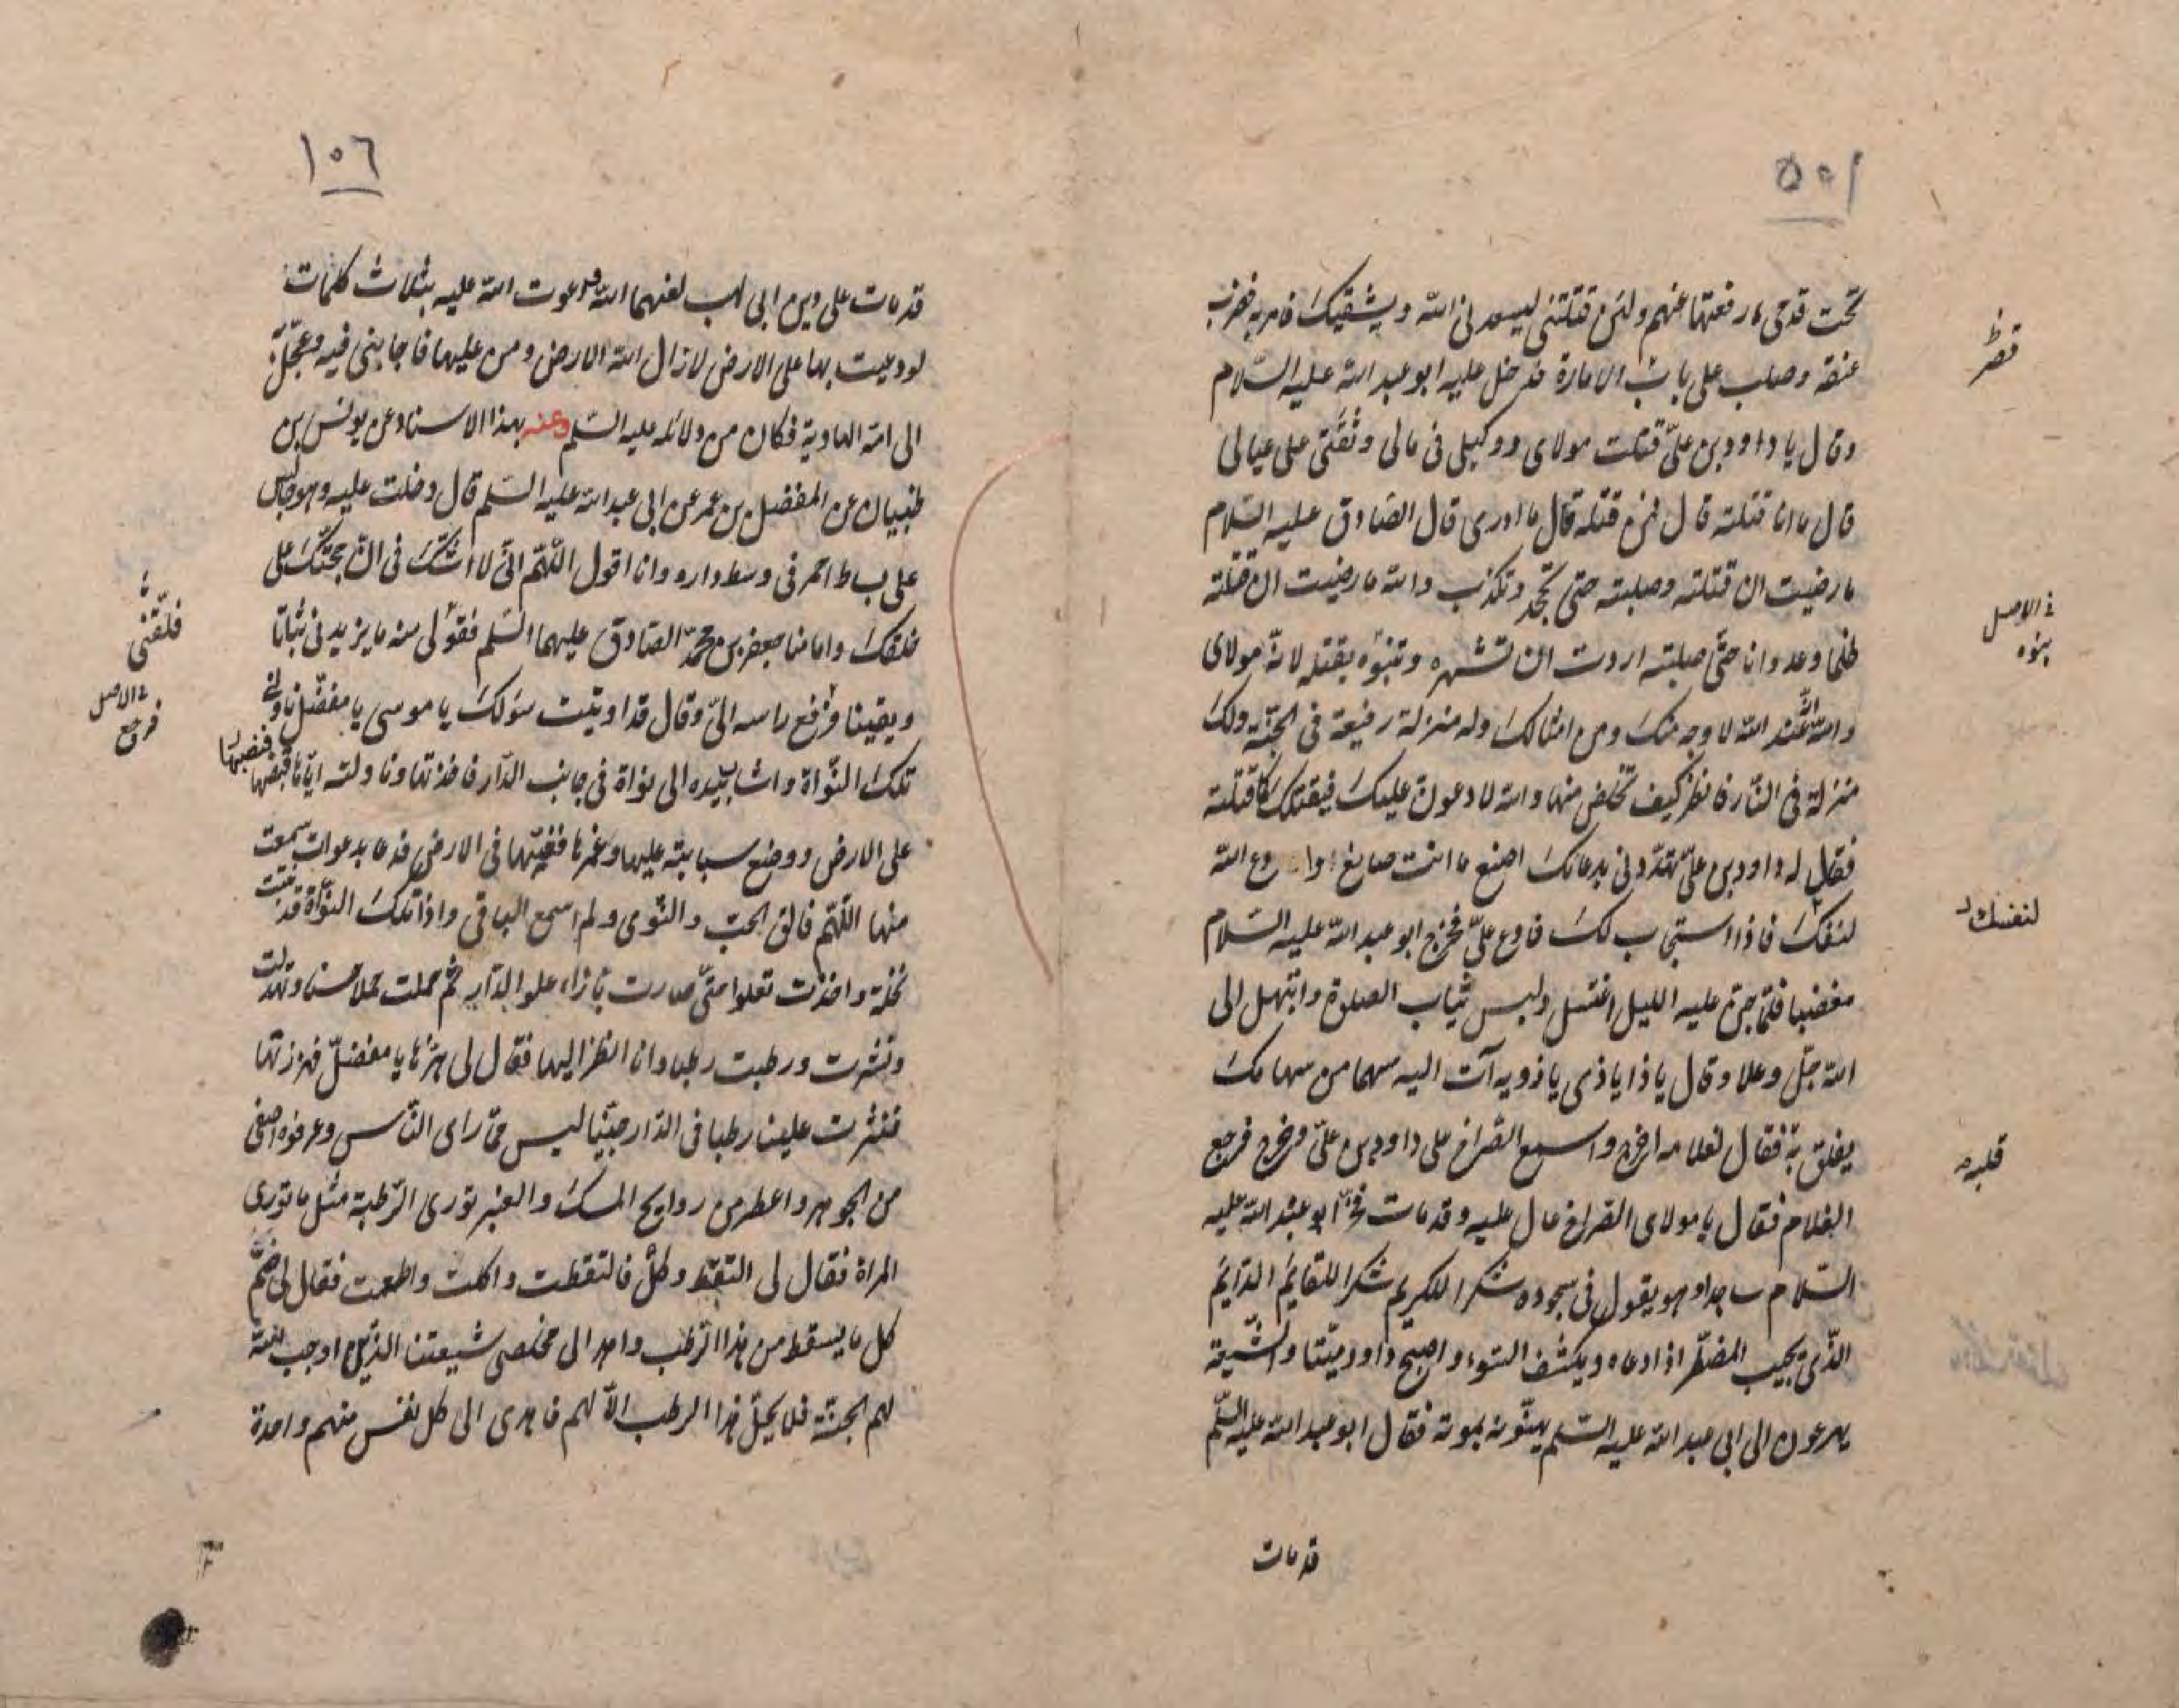 ١٥٥
تحت قدمى ما رفعتها عنهم ولئن قتلتنى ليسعدنى الله ويشقيك فامر به فضرب
عنقه وصلب على باب الامارة فدخل عليه ابو عبد الله عليه السلام
وقال يا داود بن علىّ قتلت مولاى ووكيلى فى مالى وثقتى على عيالى
قال ما انا قتلته قال فمن قتله قال ما ادرى قال الصادق عليه السلام
ما رضيت ان قتلته وصلبته حتى تجحد وتكذب والله ما رضيت ان قتلته
ظلما وعدوانا حتّى صلبته اردت ان تشهره وتنوّه بقتله لانه مولاى
والله انّه عند الله لاوجه منك ومن امثالك وله منزلة رفيعة فى الجنّة ولك
منزلة فى النّار فانظر كيف تخلص منها والله لادعون عليك فيقتلك كما قتلته
فقال له داود بن علىّ تهدّدنى بدعائك اصنع ما انت صانع ادع الله
لنفسك فاذا استجاب لك فادع علىّ فخرج ابو عبد الله عليه السلام
مغضبا فلمّا جنّ عليه الليل اغتسل ولبس ثياب الصلوة وابتهل الى
الله جلّ وعلا وقال يا ذا يا ذى يا ذويه آت اليه سهما من سهامك
يفلق به فقال لغلامه اخرج واسمع الصراخ على داود بن علىّ فخرج فرجع
الغلام فقال يا مولاى الصراخ عال عليه وقد مات فخرّ ابو عبد الله عليه
السّلام ساجدا وهو يقول فى سجوده شكرا للكريم شكرا للقايم الدّايم
الّذى يجيب المضطرّ اذا دعاه ويكشف السّوء واصبح داود ميّتا والشّيعة
يهرعون الى ابى عبد الله عليه السّلم يهنّونه بموته فقال ابو عبد الله عليه السّلم
قد مات
فى الاصل
لنفسك
قلبه
١٥٦
قد مات على دين ابى لهب لعنهما الله ودعوت الله عليه بثلاث كلمات
لو دعيت بها على الارض لازال الله الارض ومن عليها فاجابنى فيه وعجّل
الى امّه الهاوية فكان من دلائله عليه السّلم وعنه بهذا الاسناد عن يونس بن
ظبيان عن المفضل بن عمر عن ابى عبد الله عليه السّلم قال دخلت عليه وهو جالس
على بساط احمر فى وسط داره وانا اقول اللّهمّ انّى لا اشكّ فى انّ حجّتك على
خلقك وامامنا جعفر بن محمّد الصّادق عليهما السّلم فقوّ لى منه ما يزيدنى ثباتا
ويقينا فرفع راسه الىّ وقال قد اوتيت سؤلك يا موسى يا مفضّل ناولنى
تلك النّواة واشار بيده الى نواة فى جانب الدّار فاخذتها وناولته ايّاها فقبضها
على الارض ووضع سبابته عليها وغمزها فغيّبها فى الارض فدعا بدعوات سمعت
منها اللّهمّ فالق الحب والنّوى ولم اسمع الباقى واذا تلك النّواة قد نبتت
نخلة واخذت تعلوا حتّى صارت بازاء علو الدّار ثم حملت حملا حسنا وتهدلت
ونشرت ورطبت رطبا وانا انظر اليها فقال لى هزّها يا مفضل فهززتها
فنثرت علينا رطبا فى الدّار جنيّا ليس ممّا راى النّاس وعرفوه اصفى
من الجوهر واعطر من روايح المسك والعنبر تورى الرّطبة مثل ما تورى
المراة فقال لى التقط وكل فالتقطت واكلت واطعمت فقال لى ضمّ
كل ما يسقط من هذا الرّطب واهد الى مخلصى شيعتنا الذين اوجب الله
لهم الجنّة فلا يحلّ هذا الرطب الّا لهم فاهدى الى كل نفس منهم واحدة
فلقّنى
فى الاصل
فرجع
فنصبها